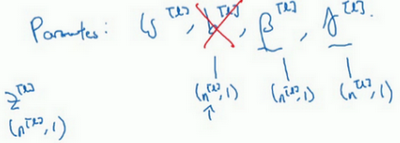 Parameters: W^[l], b^[l], β^[l], γ^[l].
(n^[l], 1) (n^[l], 1) (n^[l], 1)
z^[l]
(n^[l], 1)